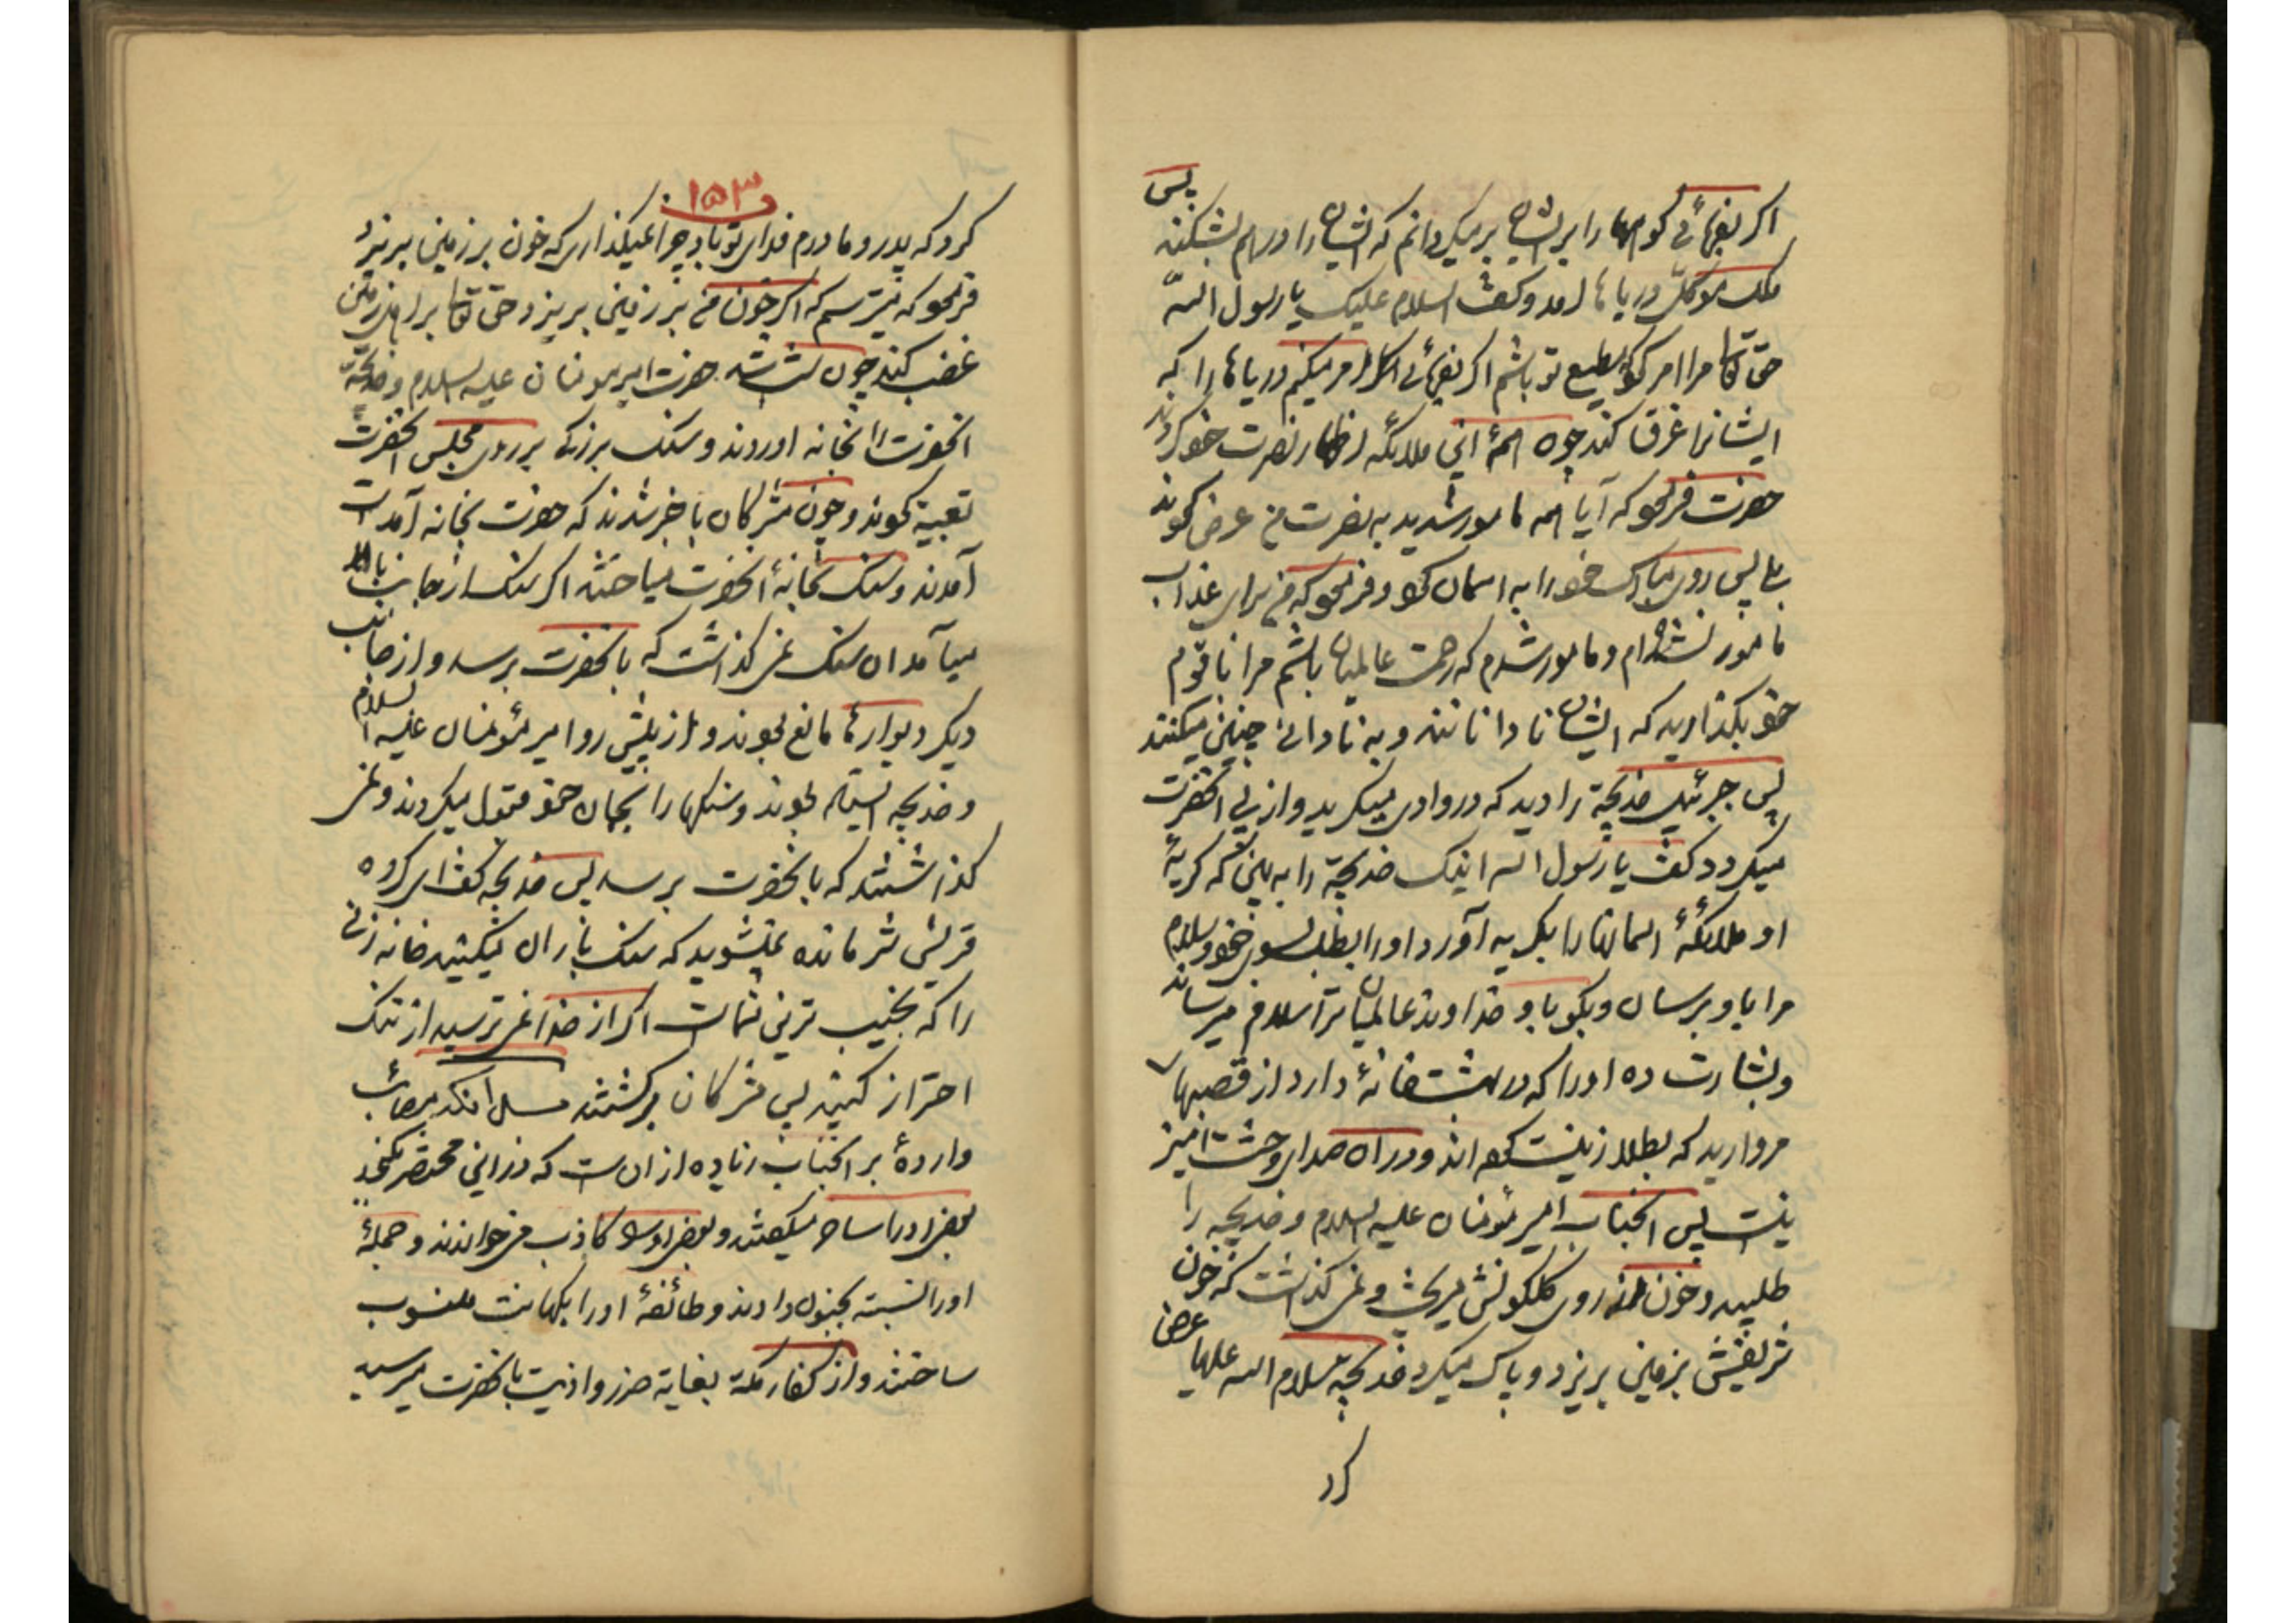 اکر بفرمائی کوهها را بر ایشان برمیکردانم که ایشان را درهم بشکند پس
ملک موکل دریاها آمد و کفت السلام علیک یا رسول الله
حق تعالی مرا امر کرده مطیع تو باشم اکر بفرمائی امر میکنم دریاها را که
ایشانرا غرق کند چون همهٔ این ملائکه اظهار نصرت خود کردند
حضرت فرمود که آیا همه مامور شدید به نصرت من عرض نمودند
بلی پس روی مبارک خود را به اسمان نمود و فرمود که من برای عذاب
مامور نشده‌ام و مامور شدم که رحمت عالمیان باشم مرا با قوم
خود بکذارید که ایشان نادانانند و به نادانی چنین میکنند
پس جبرئیل خدیجة را دید که در وادی میکرید و از پی انحضرت
میکردد کفت یا رسول الله اینک خدیجة را به بین که کریهٔ
او ملائکهٔ اسمانها را بکریه آورد او را بطلب بسوی خود و سلام
مرا باو برسان و بکو باو خداوند عالمیان ترا سلام میرساند
و بشارت ده او را که در بهشت خانهٔ دارد از قصبهای
مروارید که بطلا زینت کرده اند و در ان صدای وحشت امیز
نیست پس انجناب امیرمؤمنان علیه السلام و خدیجه را
طلبید و خون از روی کلکونش میریخت و نمی کذاشت که خون
شریفش بزمین بریزد و پاک میکرد خدیجه سلام الله علیها عرض
کرد
۱۵۳
کرد که پدر و مادرم فدای تو باد چرا نمیکذاری که خون بر زمین بریزد
فرمود که میترسم که اکر خون من بر زمین بریزد حق تعالی بر اهل زمین
غضب کند چون شب شد حضرت امیر مومنان علیه السلام و خدیجة
انحضرت را بخانه اوردند و سنک بزرکی بر روی مجلس انحضرت
تعبیة نمودند و چون مشرکان با خبر شدند که حضرت بخانه آمده است
آمدند و سنک بخانهٔ انحضرت میانداختند اکر سنک از جانب بالا
میآمد ان سنک نمی کذاشت که بانحضرت برسد و از جانب
دیکر دیوارها مانع بودند و از پیش رو امیرمؤمنان علیه السلام
و خدیجه ایستاده بودند و سنکها را بجان خود قبول میکردند و نمی
کذاشتند که بانحضرت برسد پس خدیجه کفت ای کروه
قریش شرمنده نمیشوید که سنک باران میکنید خانه زنی
را که نجیب ترین شماست اکر از خدا نمی ترسید از ننک
احتراز کنید پس مشرکان برکشتند مسلم انکه مصائب
واردهٔ بر انجناب زیاده از ان ست که در این مختصر بکنجد
بعضی او را ساحر میکفتند و بعضی او را کاذب میخواندند و جملهٔ
او را نسبته بجنون دادند و طائفهٔ او را بکهانت منسوب
ساختند و از کفار مکة بغایة ضرر و اذیت بانحضرت میرسید